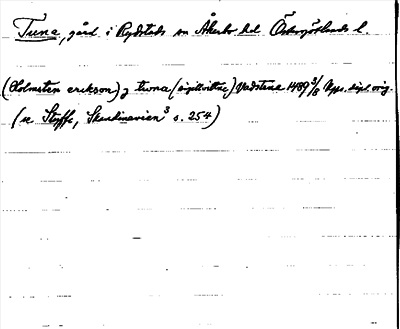 Tuna, gård i Rystads sn Åkerbo hd Östergötlands l.
(Holmsten erikson) j twna (sigillvittne) Vadstena 1489 3/8 Upps. dipl. orig.
(se Styffe, Skandinavien³ s. 254)